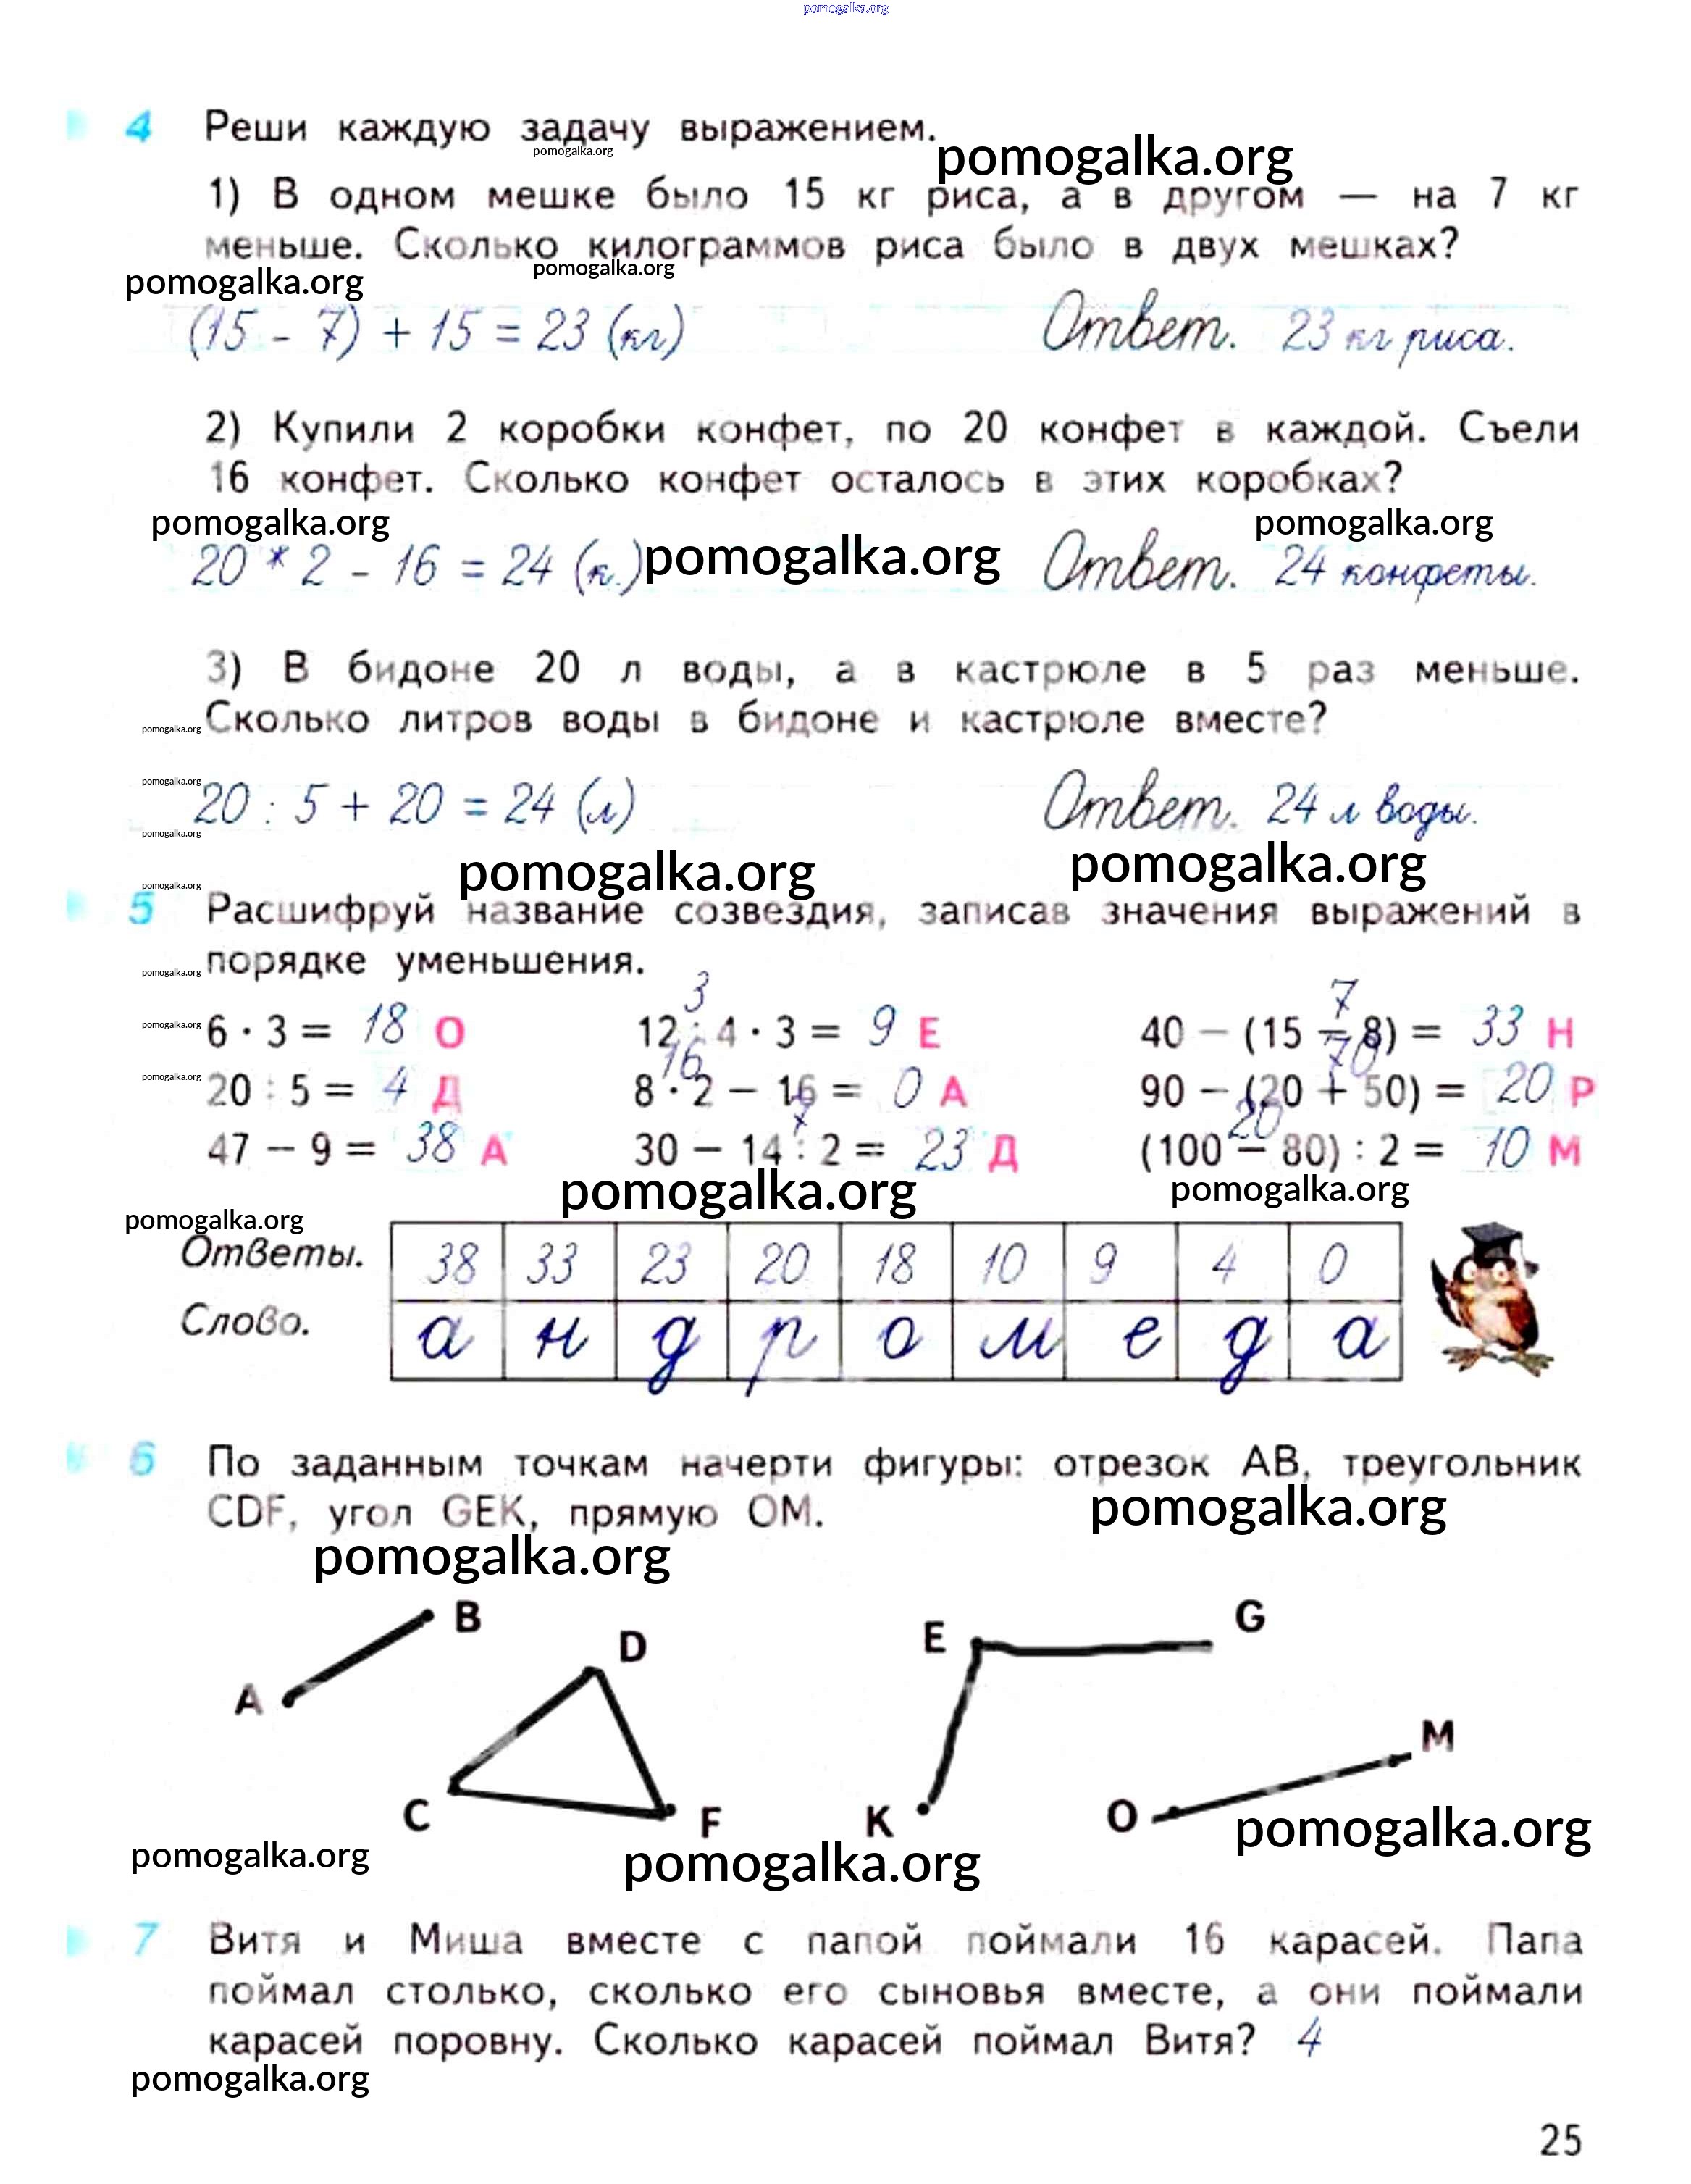 pomogalka.org
4 Реши каждую задачу выражением.
pomogalka.org
pomogalka.org
1) В одном мешке было 15 кг риса, а в другом — на 7 кг
меньше. Сколько килограммов риса было в двух мешках?
pomogalka.org
pomogalka.org
(15 - 7) + 15 = 23 (кг) Ответ. 23 кг риса.
2) Купили 2 коробки конфет, по 20 конфет в каждой. Съели
16 конфет. Сколько конфет осталось в этих коробках?
pomogalka.org pomogalka.org
20 * 2 - 16 = 24 (к.) pomogalka.org Ответ. 24 конфеты.
3) В бидоне 20 л воды, а в кастрюле в 5 раз меньше.
pomogalka.org Сколько литров воды в бидоне и кастрюле вместе?
pomogalka.org
20 : 5 + 20 = 24 (л) Ответ. 24 л воды.
pomogalka.org
pomogalka.org pomogalka.org
pomogalka.org
5 Расшифруй название созвездия, записав значения выражений в
pomogalka.org порядке уменьшения.
3 7
pomogalka.org 6 · 3 = 18 О 12 : 4 · 3 = 9 Е 40 − (15 − 8) = 33 Н
16 70
pomogalka.org 20 : 5 = 4 Д 8 · 2 − 16 = 0 А 90 − (20 + 50) = 20 Р
7 20
47 − 9 = 38 А 30 − 14 : 2 = 23 Д (100 − 80) : 2 = 10 М
pomogalka.org pomogalka.org
pomogalka.org
Ответы. 38 33 23 20 18 10 9 4 0
Слово. а н д р о м е д а
6 По заданным точкам начерти фигуры: отрезок АВ, треугольник
CDF, угол GEK, прямую ОМ.
pomogalka.org
pomogalka.org
B G
D E
A
M
C F K O
pomogalka.org
pomogalka.org pomogalka.org
7 Витя и Миша вместе с папой поймали 16 карасей. Папа
поймал столько, сколько его сыновья вместе, а они поймали
карасей поровну. Сколько карасей поймал Витя? 4
pomogalka.org
25